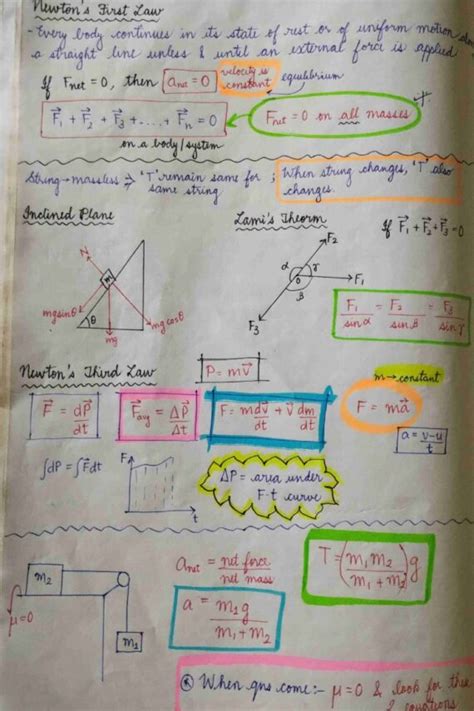 Newton's First Law
- Every body continues in its state of rest or of uniform motion along
a straight line unless & until an external force is applied
If Fnet = 0, then a_net = 0 velocity is constant equilibrium
F⃗₁ + F⃗₂ + F⃗₃ + .... + F⃗n = 0
on a body/system
Fnet = 0 on all masses
String → massless ⇒ 'T' remain same for same string ; When string changes, 'T' also changes.
Inclined Plane
N
m
mg sinθ
θ
mg
mg cosθ
Lami's Theorm
F₂
α
γ
0
F₁
β
F₃
If F⃗₁ + F⃗₂ + F⃗₃ = 0
F₁/sinα = F₂/sinβ = F₃/sinγ
Newton's Third Law
P = mv⃗
m → constant
F⃗ = dP⃗/dt
F⃗avg = ΔP⃗/Δt
F = mdv⃗/dt + v⃗ dm/dt
F = ma⃗
a = v-u/t
∫dP = ∫F⃗dt
F
t
ΔP = area under
F-t curve
m₂
μ=0
m₁
a_net = net force/net mass
a = m₁g/m₁+m₂
T = (m₁m₂/m₁+m₂)g
When qns come:- μ=0 & look for
& equations